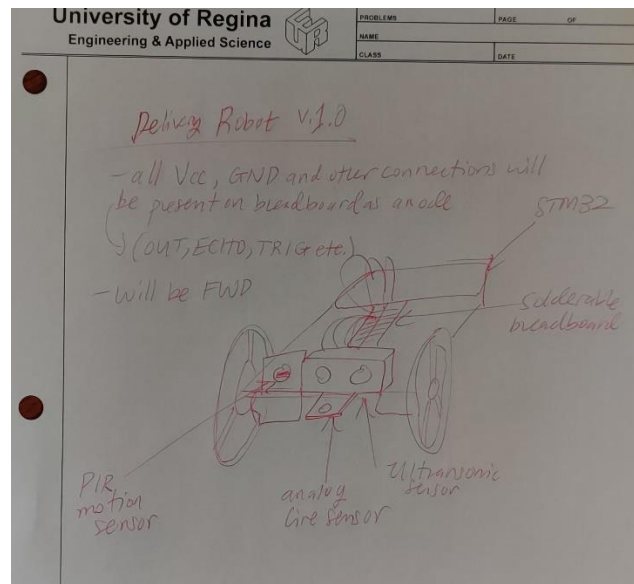 University of Regina
Engineering & Applied Science
PROBLEMS
PAGE OF
NAME
CLASS
DATE
Delivery Robot v.1.0
- all Vcc, GND and other connections will
be present on breadboard as a node
(OUT, ECHO, TRIG etc.)
- Will be FWD
STM32
Solderable
breadboard
PIR
motion
sensor
analog
line sensor
Ultrasonic
sensor